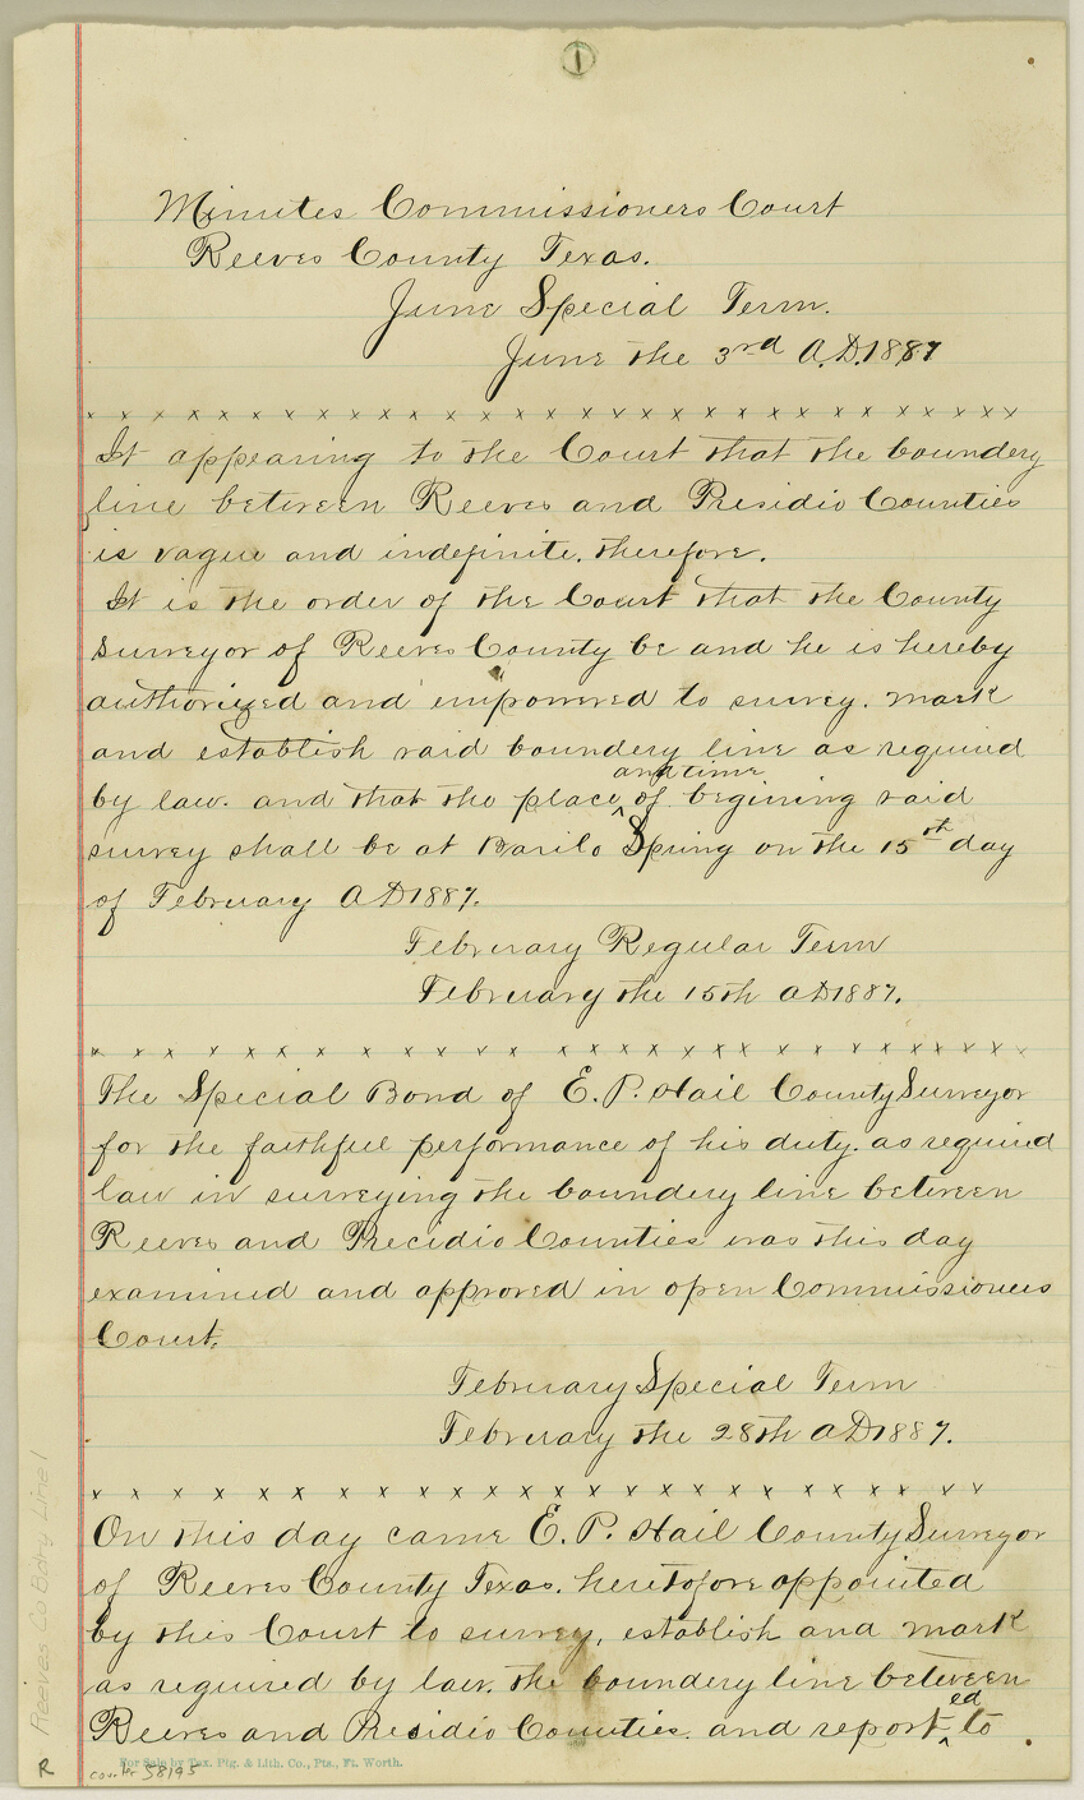 1
Minutes Commissioners Court
Reeves County Texas.
June Special Term.
June the 3rd A.D. 1887
x x x x x x x x x x x x x x x x x x x x x x x x x x x x x
It appearing to the Court that the boundery
line between Reeves and Presidio Counties
is vague and indefinite, therefore.
It is the order of the Court that the County
Surveyor of Reeves County be and he is hereby
authorized and empowered to survey. mark
and establish said boundery line as required
and time
by law. and that the place ^ of begining said
survey shall be at Barilo Spring on the 15th day
of February AD 1887.
February Regular Term
February the 15th AD 1887.
x x x x x x x x x x x x x x x x x x x x x x x x x x
The Special Bond of E. P. Hail County Surveyor
for the faithful performance of his duty. as required
law in surveying the boundery line between
Reeves and Precidio Counties was this day
examined and approved in open Commissioners
Court.
February Special Term
February the 28th AD 1887.
x x x x x x x x x x x x x x x x x x x x x x x x x
On this day came E. P. Hail County Surveyor
of Reeves County Texas. heretofore appointed
by this Court to survey, establish and mark
as required by law. the boundery line between
ed
Reeves and Presidio Counties. and report ^ to
For Sale by Tex. Ptg. & Lith. Co., Pts., Ft. Worth.
counter 58195
R
Reeves Co Bdry Line 1